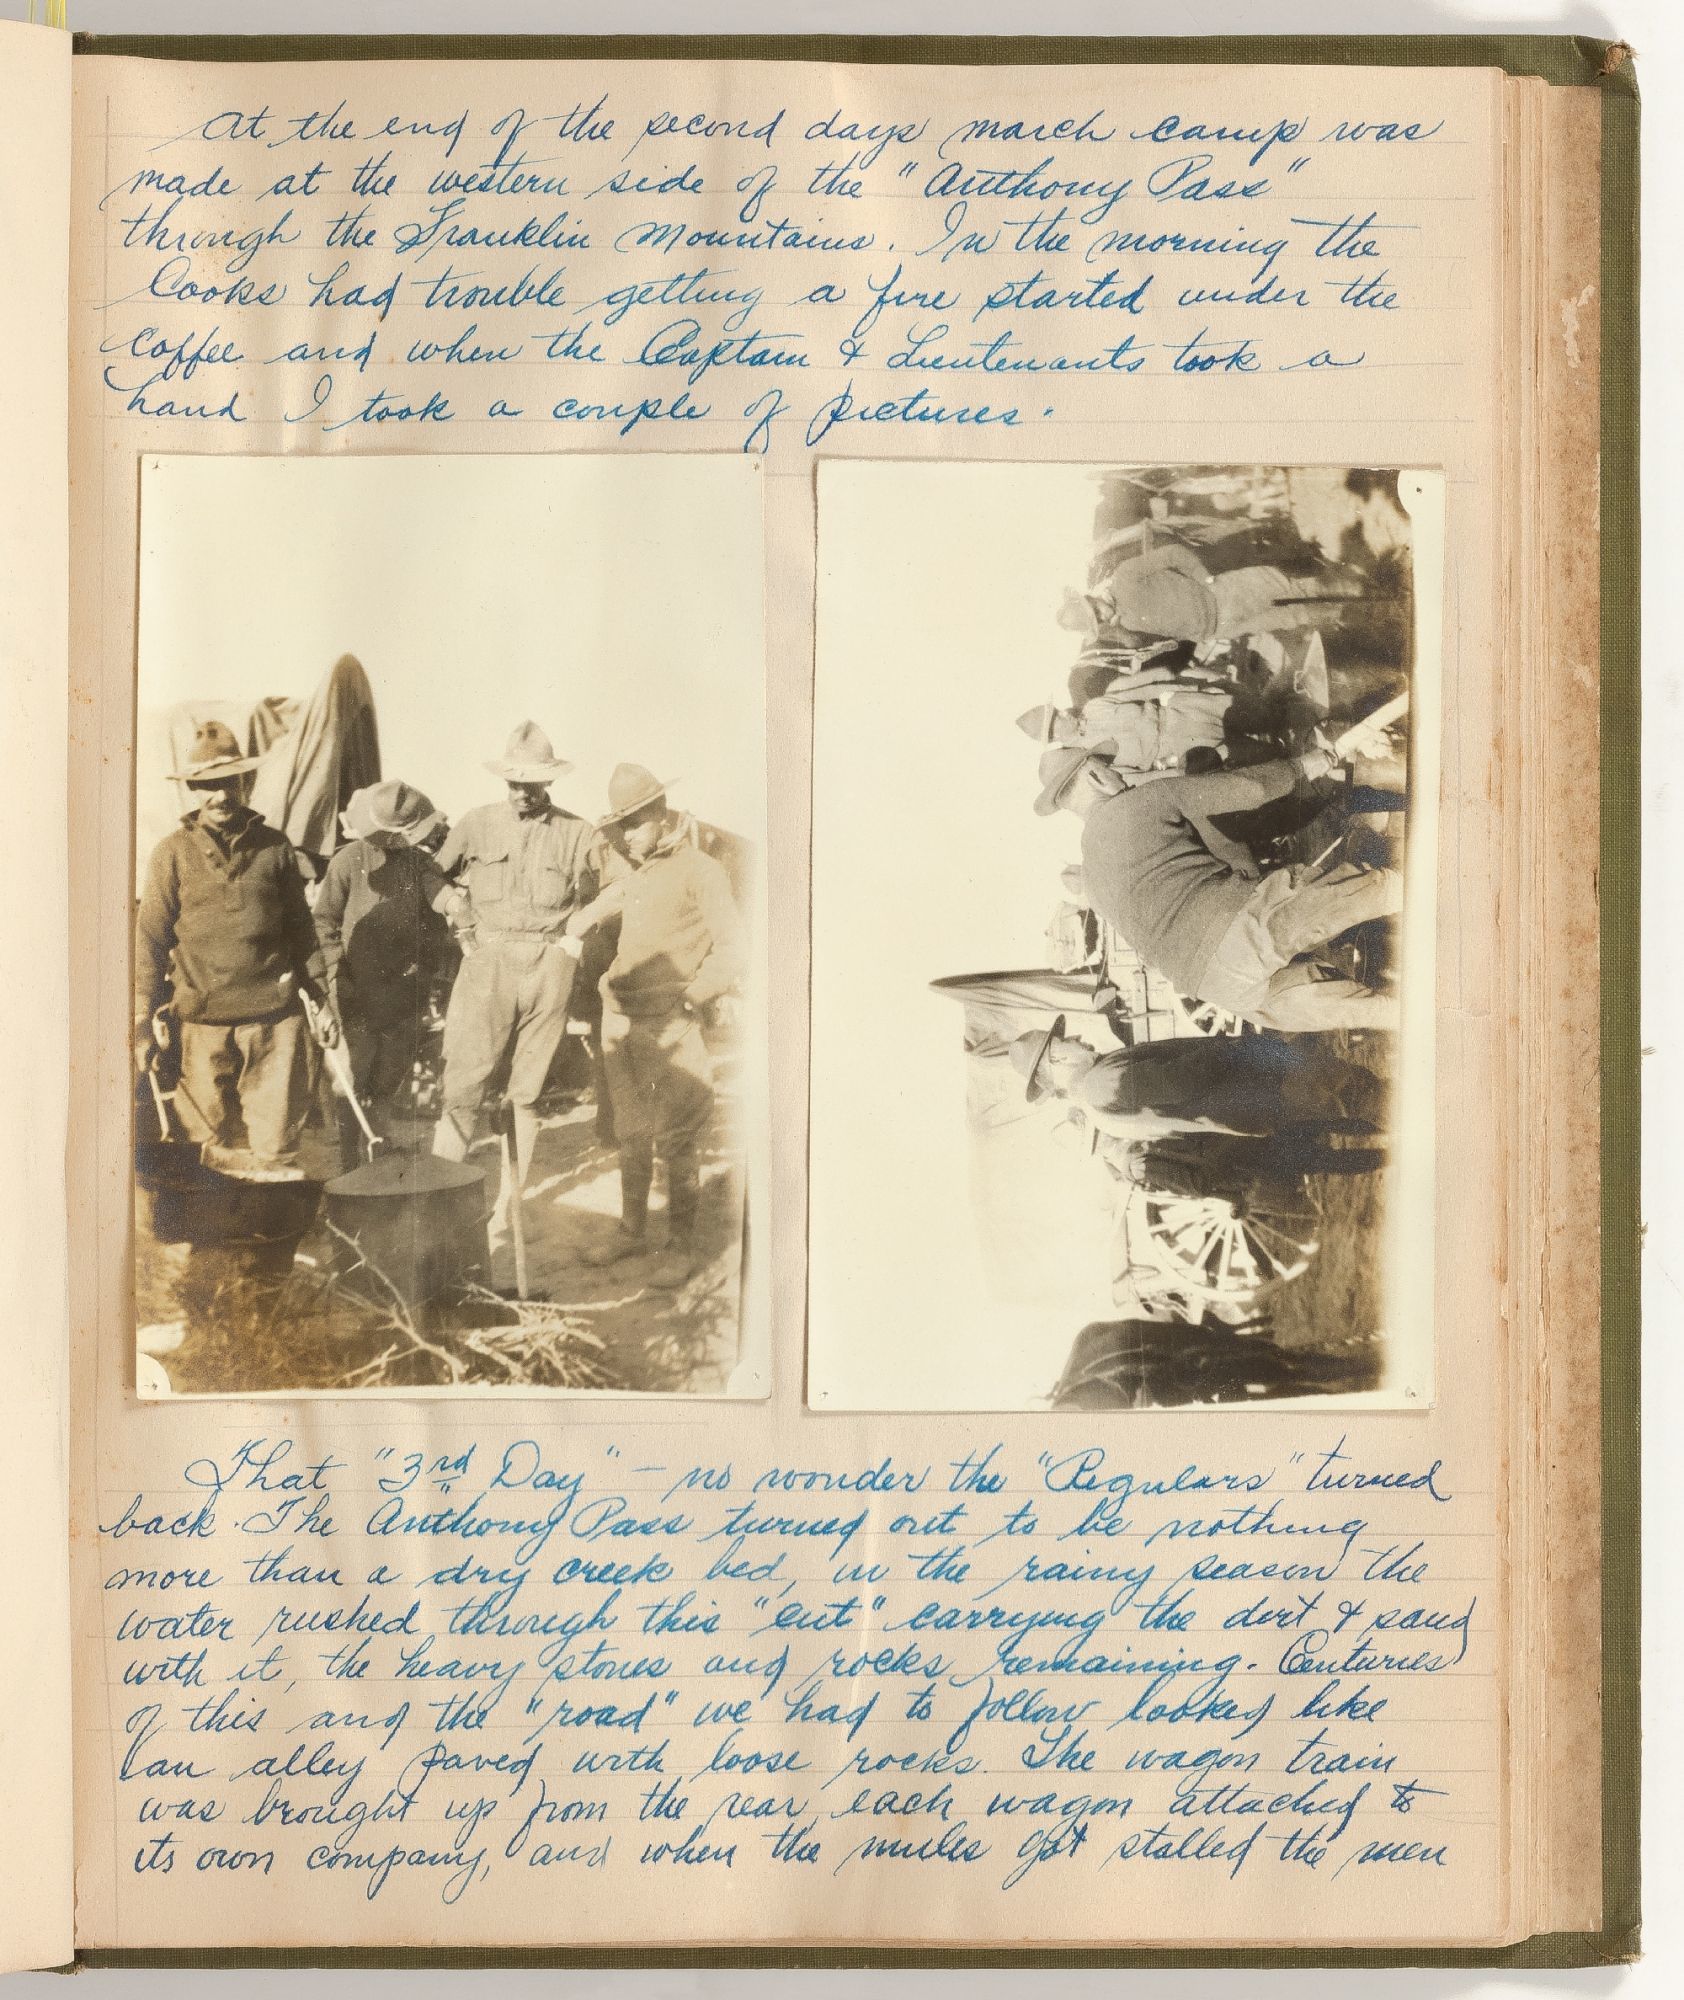 At the end of the second days march camp was
made at the western side of the "Anthony Pass"
through the Franklin Mountains. In the morning the
Cooks had trouble getting a fire started under the
coffee and when the Captain & Lieutenants took a
hand I took a couple of pictures.
That "3rd Day" - no wonder the "Regulars" turned
back. The Anthony Pass turned out to be nothing
more than a dry creek bed, in the rainy season the
water rushed through this "cut" carrying the dirt & sand
with it, the heavy stones and rocks remaining. Centuries
of this and the "road" we had to follow looked like
an alley paved with loose rocks. The wagon train
was brought up from the rear, each wagon attached to
its own company, and when the mules got stalled the men